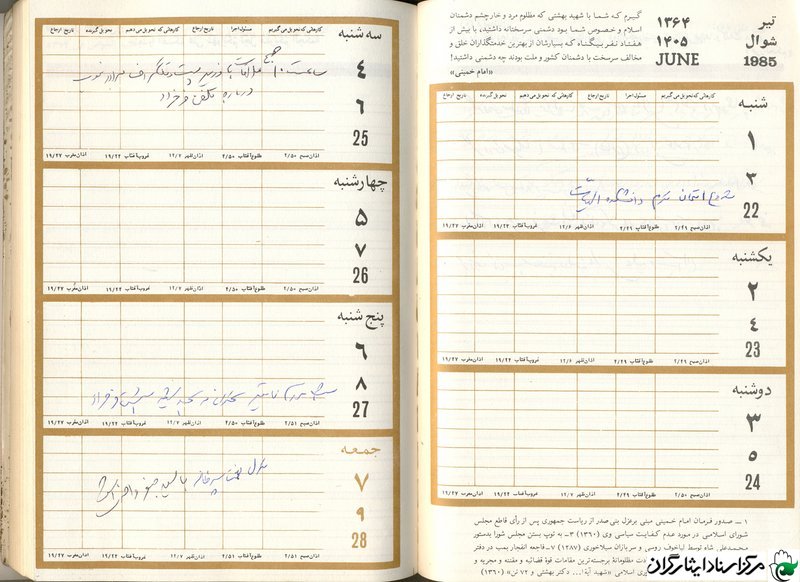 تیر ۱۳۶۴
شوال ۱۴۰۵
1985 JUNE
گیرم که شما با شهید بهشتی که مظلوم مرد و خار چشم دشمنان
اسلام و خصوص شما بود دشمنی سرسختانه داشتید، با بیش از
هفتاد نفر بیگناه که بسیارشان از بهترین خدمتگذاران خلق و
مخالف سرسخت با دشمنان کشور و ملت بودند چه دشمنی داشتید!
«امام خمینی»
کارهائی که تحویل می‌گیریم مسئول اجرا تاریخ ارجاع کارهائی که تحویل می‌دهیم تحویل گیرنده تاریخ ارجاع
شنبه
۱
۳
22
شروع امتحان ترم دانشکده الهیات
اذان صبح ۲/۴۹ طلوع آفتاب ۴/۴۹ اذان ظهر ۱۲/۶ غروب آفتاب ۱۹/۲۴ اذان مغرب ۱۹/۴۷
یکشنبه
۲
۴
23
اذان صبح ۲/۴۹ طلوع آفتاب ۴/۴۹ اذان ظهر ۱۲/۶ غروب آفتاب ۱۹/۲۴ اذان مغرب ۱۹/۴۷
دوشنبه
۳
۵
24
اذان صبح ۲/۵۰ طلوع آفتاب ۴/۴۹ اذان ظهر ۱۲/۷ غروب آفتاب ۱۹/۲۴ اذان مغرب ۱۹/۴۷
۱ – صدور فرمان امام خمینی مبنی بر عزل بنی صدر از ریاست جمهوری پس از رأی قاطع مجلس
شورای اسلامی در مورد عدم کفایت سیاسی وی (۱۳۶۰) ۳– به توپ بستن مجلس شورا بدستور
محمدعلی شاه توسط لیاخوف روسی و سربازان سیلاخوری (۱۲۸۷) ۷– فاجعه انفجار بمب در دفتر
مظلومانهٔ برجسته‌ترین مقامات قوهٔ قضائیه و مقننه و مجریه و
اسلامی «شهید آیة‌ا... دکتر بهشتی و ۷۲ تن» (۱۳۶۰)
کارهائی که تحویل می‌گیریم مسئول اجرا تاریخ ارجاع کارهائی که تحویل می‌دهیم تحویل گیرنده تاریخ ارجاع
سه شنبه
۴
۶
25
ساعت ۱۰ صبح ملاقات با وزیر پست و تلگراف
درباره تلفن
اذان صبح ۲/۵۰ طلوع آفتاب ۴/۵۰ اذان ظهر ۱۲/۷ غروب آفتاب ۱۹/۲۴ اذان مغرب ۱۹/۴۷
چهارشنبه
۵
۷
26
اذان صبح ۲/۵۰ طلوع آفتاب ۴/۵۰ اذان ظهر ۱۲/۷ غروب آفتاب ۱۹/۲۴ اذان مغرب ۱۹/۴۷
پنج شنبه
۶
۸
27
اذان صبح ۲/۵۱ طلوع آفتاب ۴/۵۰ اذان ظهر ۱۲/۷ غروب آفتاب ۱۹/۲۴ اذان مغرب ۱۹/۴۷
جمعه
۷
۹
28
اذان صبح ۲/۵۱ طلوع آفتاب ۴/۵۱ اذان ظهر ۱۲/۷ غروب آفتاب ۱۹/۲۴ اذان مغرب ۱۹/۴۷
مرکز اسناد ایثارگران